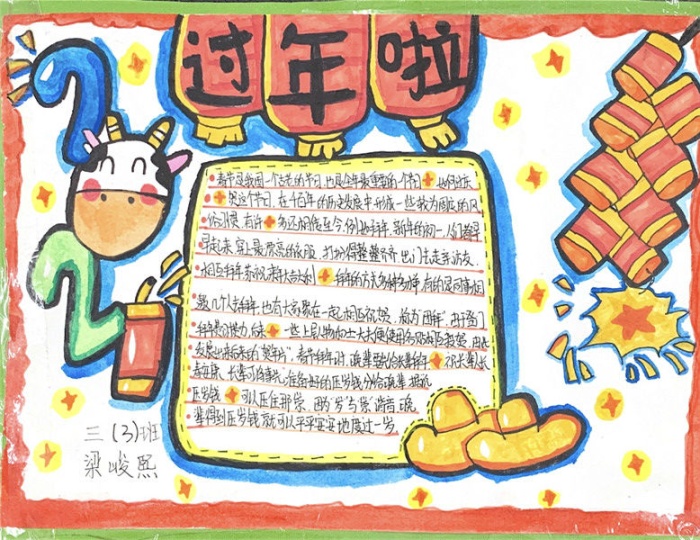 过年啦
春节是我国一个古老的节日,也是全年最重要的一个节日 如何过年
是这个节日,在千百年的历史发展中,形成一些较为固定的风
俗习惯,有许多还相传至今,例如拜年,新年的初一,人们都早
早起来,穿上最漂亮的衣服,打扮得整整齐齐,出门去走亲访友,
相互拜年,祈祝来年大吉大利 拜年的方式多种多样,有的是同事相
邀几个人去拜年,也有大家聚在一起相互祝贺,称为"团拜",由于登门
拜年费时费力,后来一些上层人物和士大夫便使用名帖相互投贺,由此
发展出来后来的"贺年片",春节拜年时,晚辈要先给长辈拜年,祝长辈人长
寿安康,长辈可将事先准备好的压岁钱分给晚辈,据说
压岁钱可以压住邪祟,因为"岁"与"祟"谐音,晚
辈得到压岁钱就可以平平安安地度过一岁。
三(3)班
梁峻熙